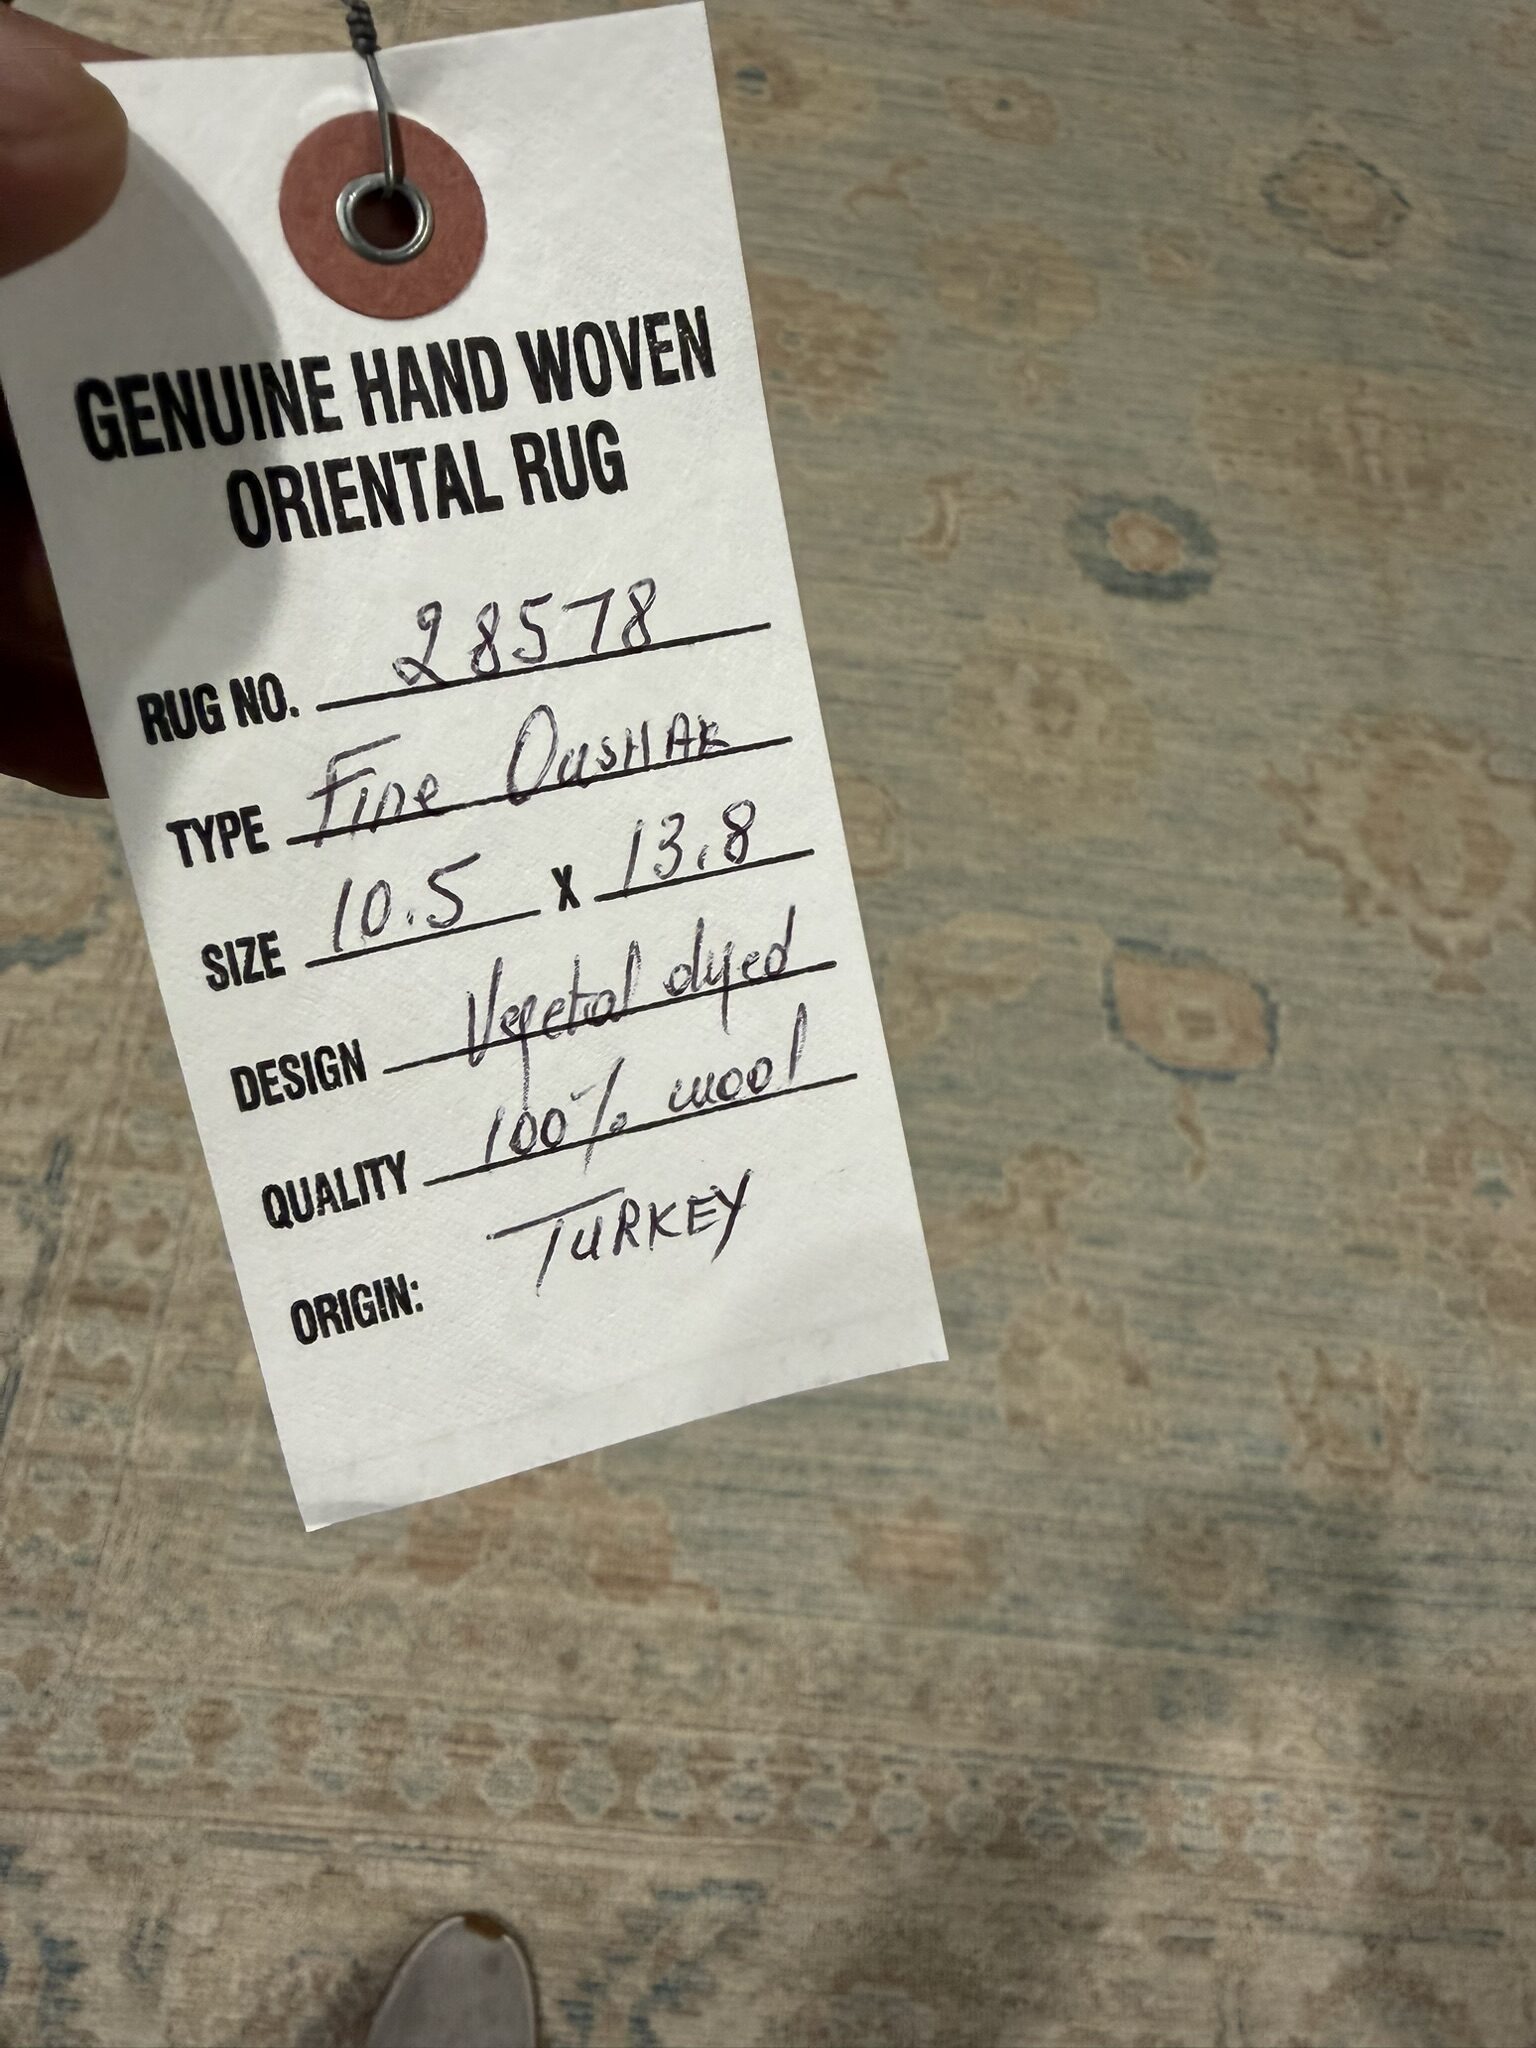 GENUINE HAND WOVEN
ORIENTAL RUG
RUG NO. 28578
TYPE Fine OusHAK
SIZE 10.5 X 13.8
DESIGN Vegetal dyed
QUALITY 100% wool
ORIGIN: TURKEY